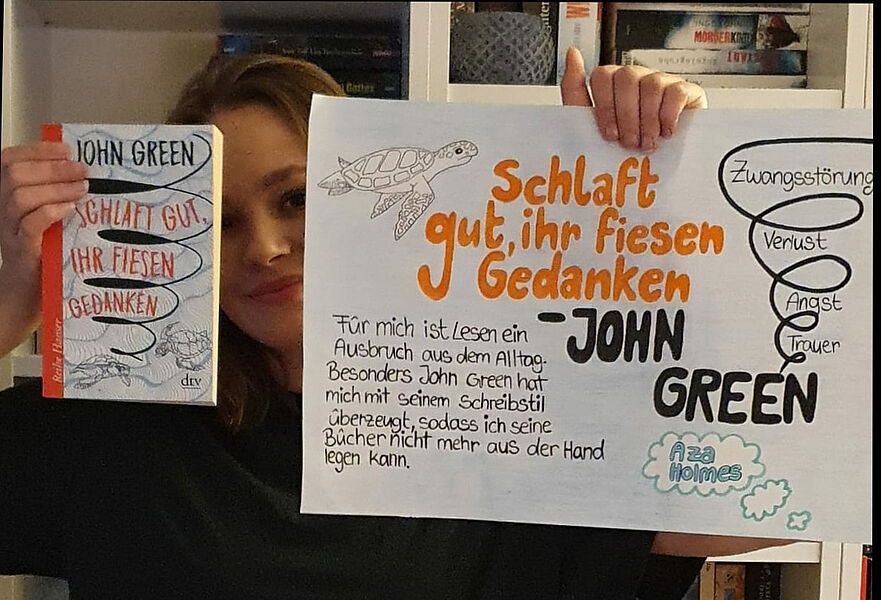 JOHN GREEN
SCHLAFT GUT,
IHR FIESEN
GEDANKEN
Reihe Hanser
dtv
Schlaft
gut, ihr fiesen
Gedanken
-JOHN
GREEN
Für mich ist Lesen ein
Ausbruch aus dem Alltag.
Besonders John Green hat
mich mit seinem Schreibstil
überzeugt, sodass ich seine
Bücher nicht mehr aus der Hand
legen kann.
Zwangsstörung
Verlust
Angst
Trauer
Aza
Holmes